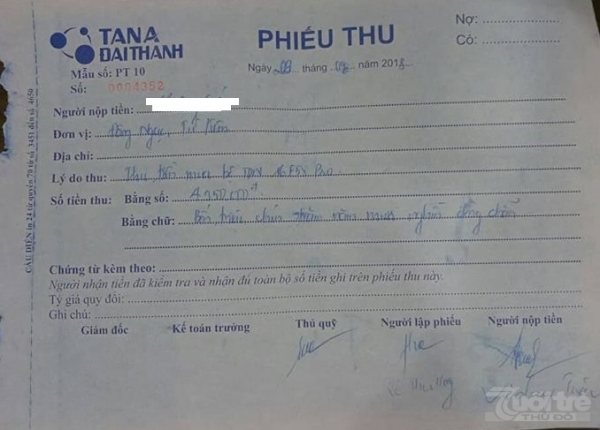 TÂN Á
ĐẠI THÀNH
PHIẾU THU
Nợ:
Có:
Mẫu số: PT 10
Số: 0004352
Ngày 09 tháng 09 năm 2018
Người nộp tiền:
Đơn vị: Đông Ngạc, Từ Liêm
Địa chỉ:
Lý do thu: Thu tiền mua bể
Số tiền thu: Bằng số: 4.950.000đ
Bằng chữ: Bốn triệu chín trăm năm mươi nghìn đồng chẵn
Chứng từ kèm theo:
Người nhận tiền đã kiểm tra và nhận đủ toàn bộ số tiền ghi trên phiếu thu này.
Tỷ giá quy đổi:
Ghi chú:
Giám đốc Kế toán trưởng Thủ quỹ Người lập phiếu Người nộp tiền
Tuổi trẻ
THỦ ĐÔ